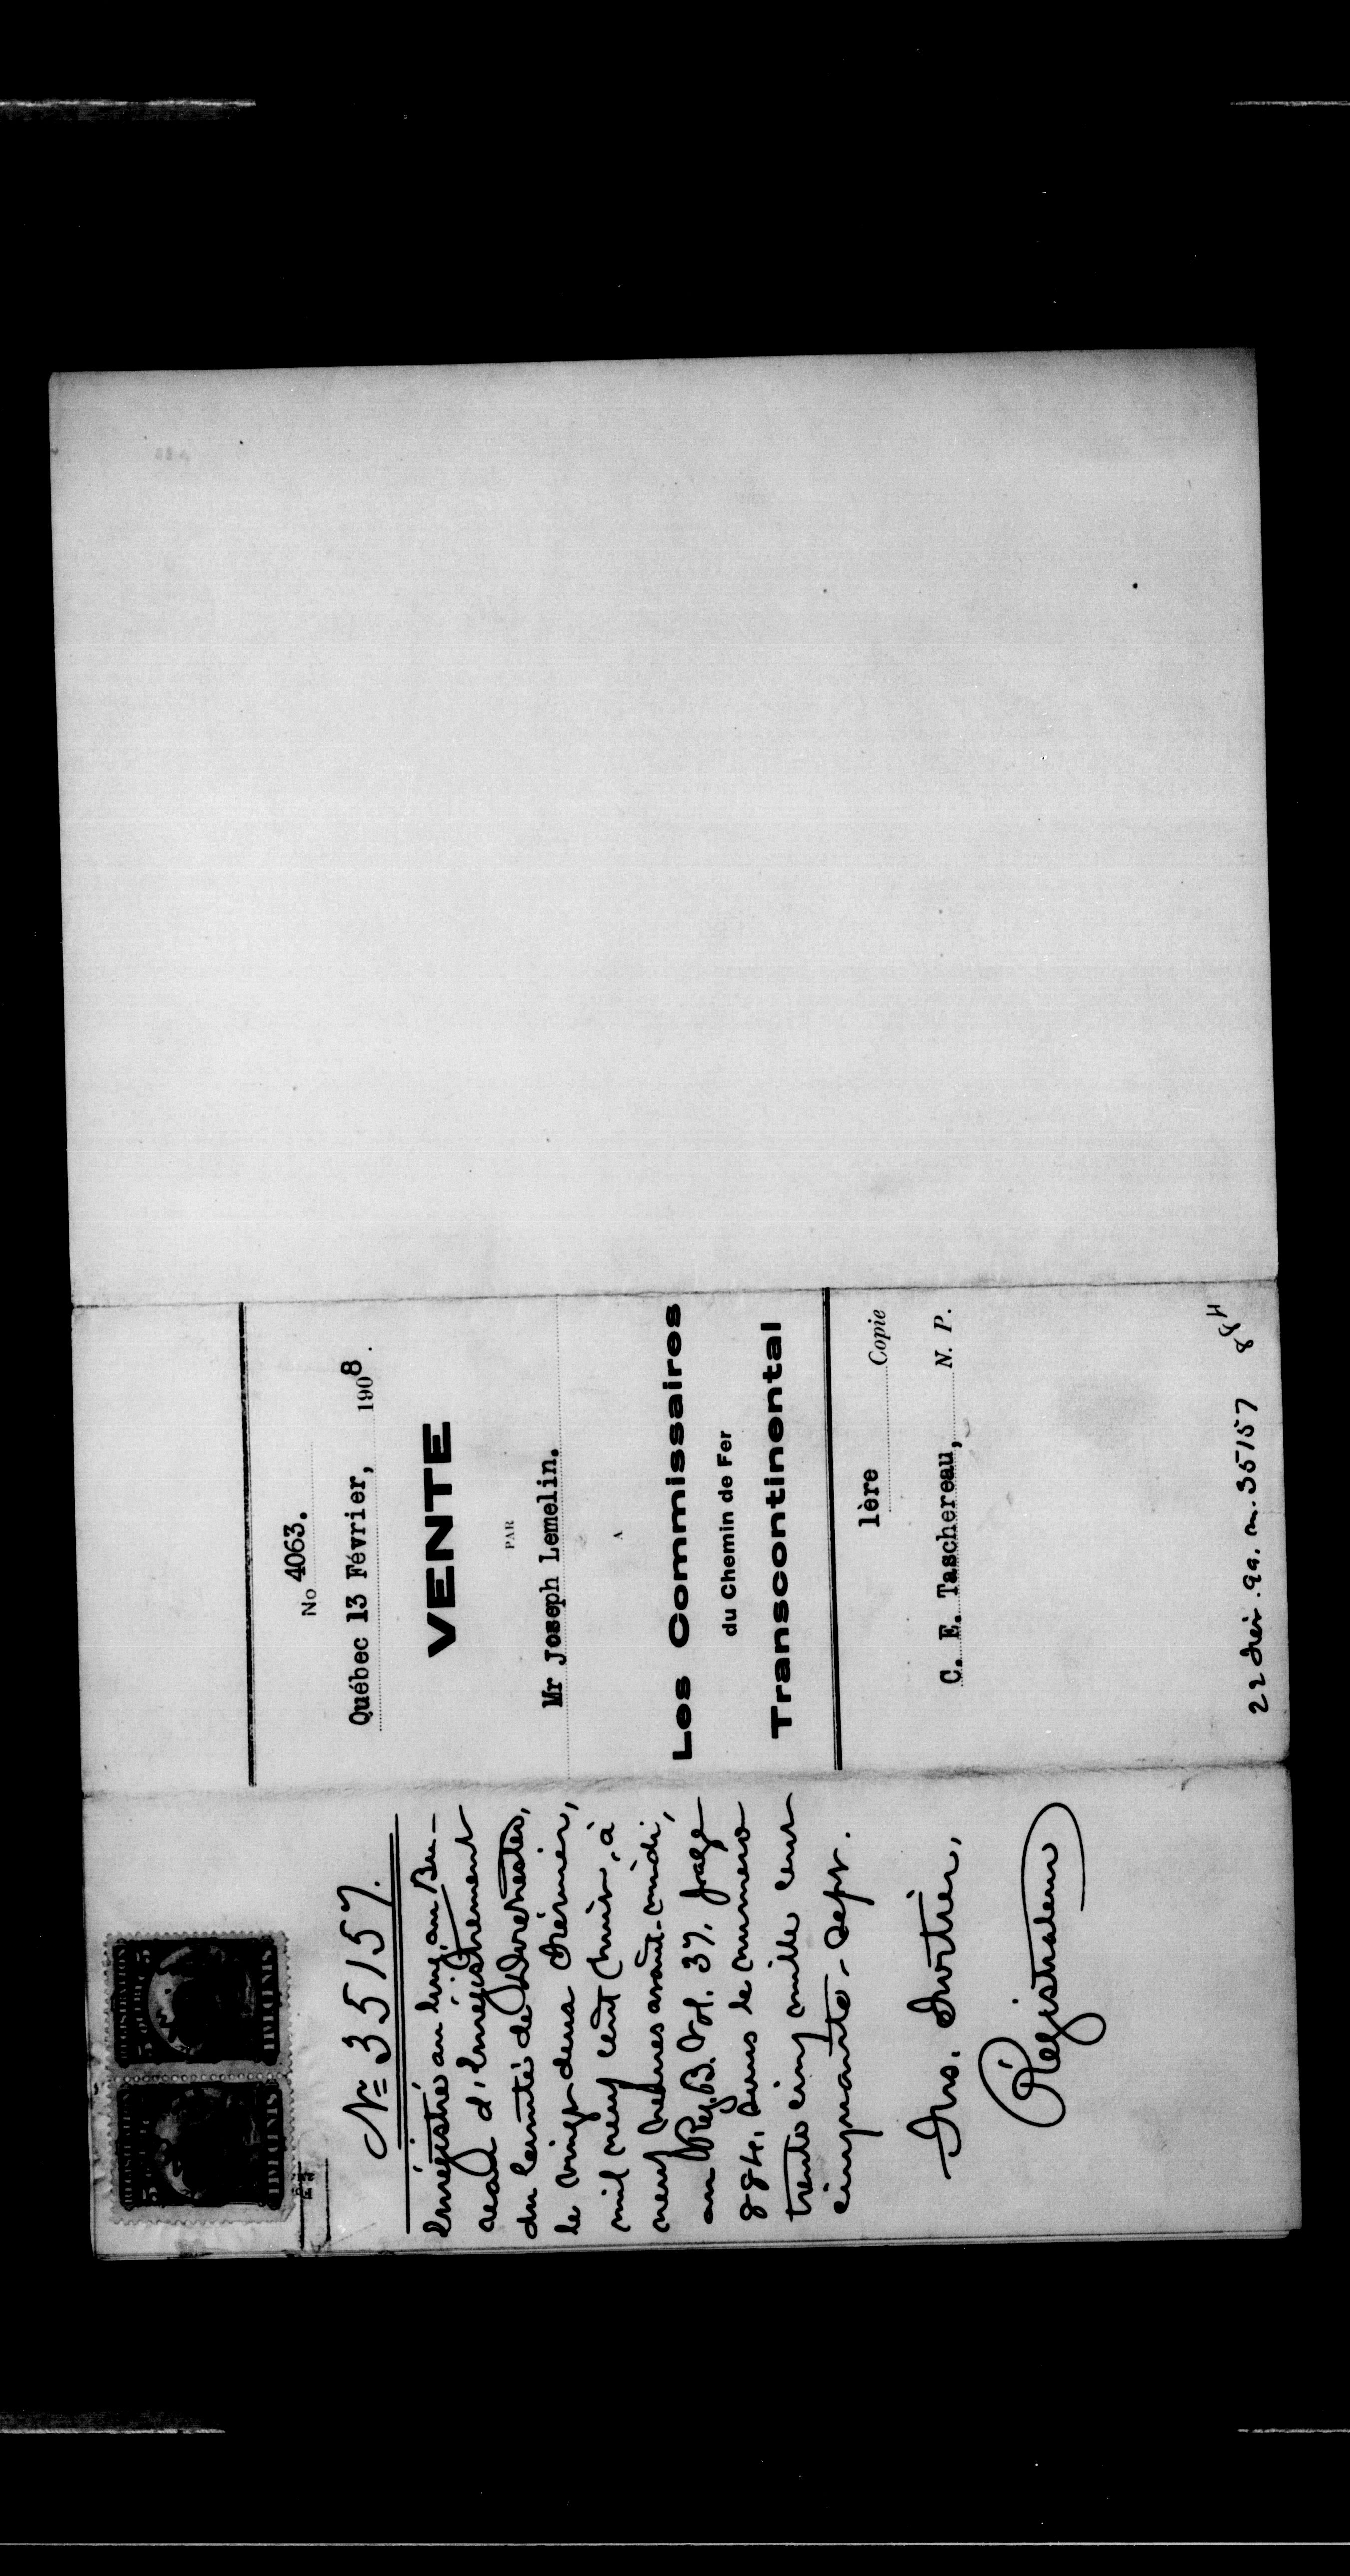 REGISTRATION
5 QUEBEC 5
FIVE CENTS
REGISTRATION
5 QUEBEC 5
FIVE CENTS
No 35157.
Enregistré au long, au Bu-
reau d'Enregistrement
du Comté de Dorchester,
le vingt deux Février,
mil neuf cent huit, à
neuf heures avant-midi,
au Reg. B. Vol. 37. page
884. sous le numero
trente cinq mille cent
cinquante-sept.
Régistrateur
No 4063.
Québec 13 Février, 1908.
VENTE
PAR
Mr Joseph Lemelin.
A
Les Commissaires
du Chemin de Fer
Transcontinental
1ère Copie
C. E. Taschereau, N. P.
22 Fév. 9 a. m. 35157 884